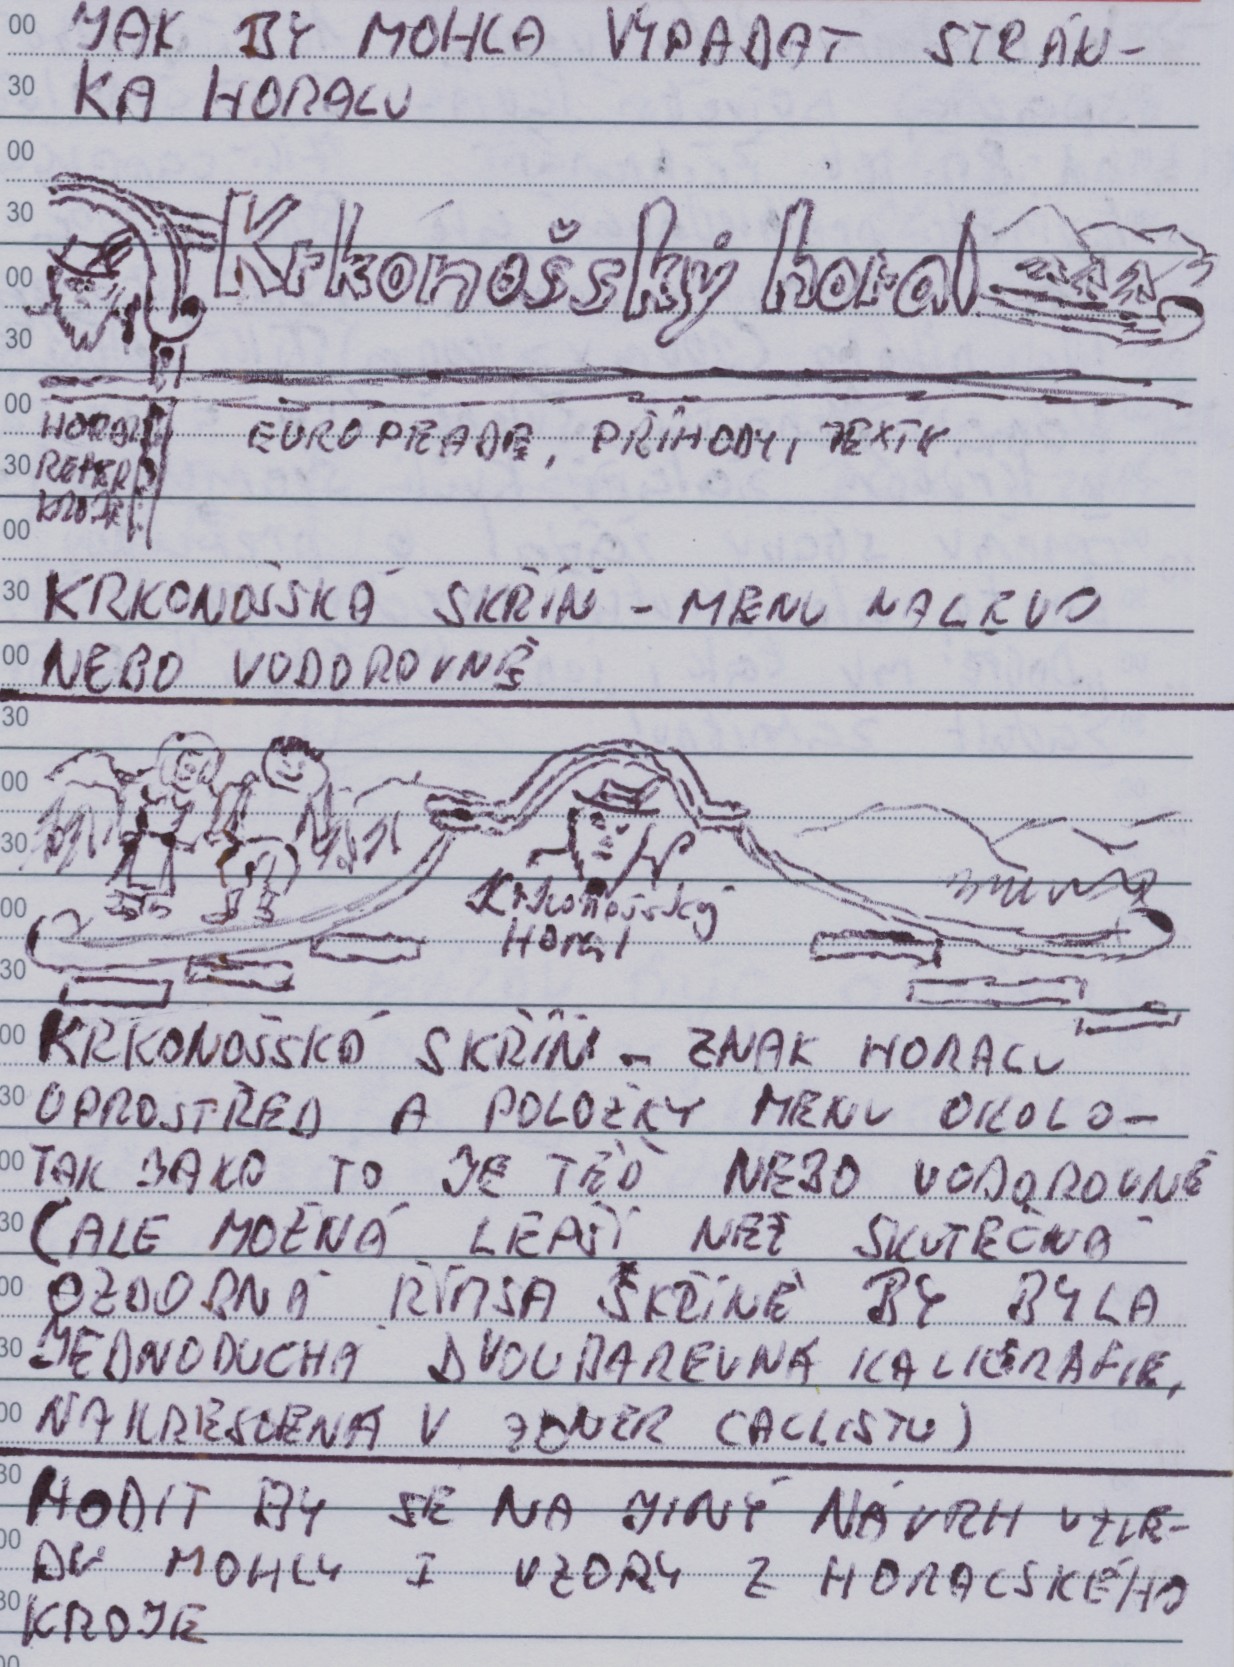 JAK BY MOHLA VYPADAT STRÁN-
KA HORALU
Krkonošský horal
HORAL EUROPEADE, PŘÍHODY, TEXTY
REPER
KROJE
KRKONOŠSKÁ SKŘÍŇ - MENU NALEVO
NEBO VODOROVNĚ
Krkonošský
Horal
KRKONOŠSKÁ SKŘÍŇ - ZNAK HORALU
UPROSTŘED A POLOŽKY MENU OKOLO -
TAK JAKO TO JE TEĎ NEBO VODOROVNĚ
(ALE MOŽNÁ LEPŠÍ NEŽ SKUTEČNÁ
OZDOBNÁ ŘÍMSA SKŘÍNĚ BY BYLA
JEDNODUCHÁ DVOUBAREVNÁ KALIGRAFIE,
NAKRESLENÁ V ZONER CALLISTU)
HODIT BY SE NA JINÝ NÁVRH VZHLE-
DU MOHLY I VZORY Z HORALSKÉHO
KROJE
00
30
00
30
00
30
00
30
00
30
00
30
00
30
00
30
00
30
00
30
00
30
00
30
00
30
00